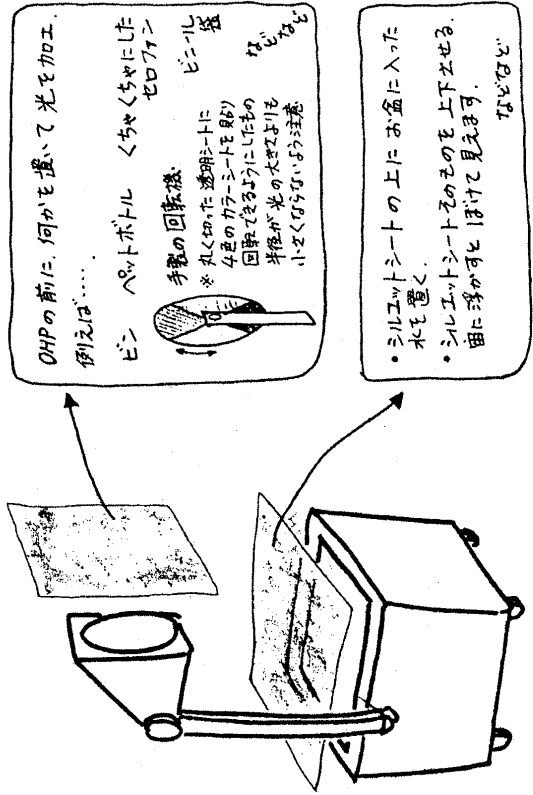 OHPの前に、何かを置いて光を加工。
例えば‥‥‥
ビン ペットボトル くちゃくちゃにしたセロファン ビニール袋
などなど
手製の回転機
※丸く切った透明シートに
4色のカラーシートを貼り
回転できるようにしたもの
半径が光の大きさよりも
小さくならないよう注意
・シルエットシートの上にお盆に入った
水を置く。
・シルエットシートそのものを上下させる。
宙に浮かすとぼけて見えます。
などなど